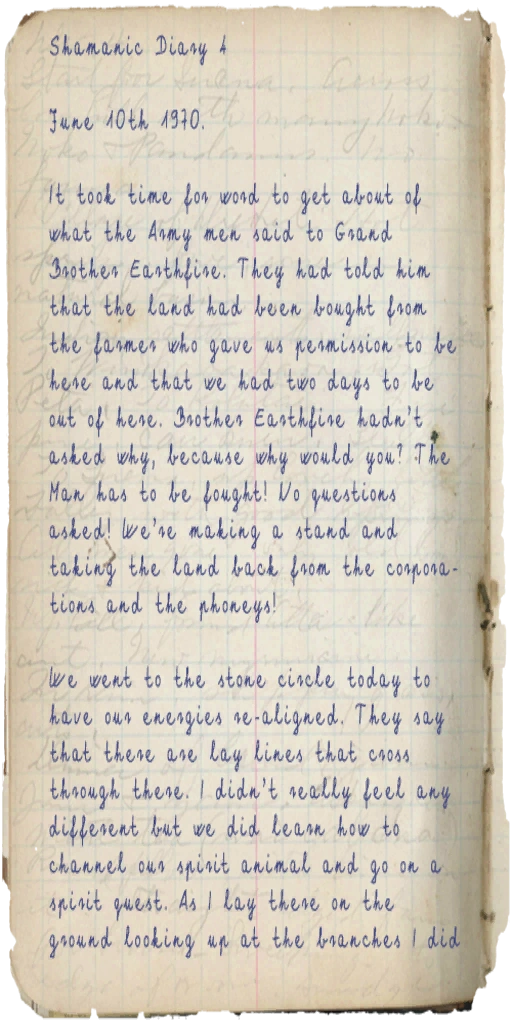 Shamanic Diary 4
June 10th 1970.
It took time for word to get about of
what the Army men said to Grand
Brother Earthfire. They had told him
that the land had been bought from
the farmer who gave us permission to be
here and that we had two days to be
out of here. Brother Earthfire hadn't
asked why, because why would you? The
Man has to be fought! No questions
asked! We're making a stand and
taking the land back from the corpora-
tions and the phoneys!
We went to the stone circle today to
have our energies re-aligned. They say
that there are lay lines that cross
through there. I didn't really feel any
different but we did learn how to
channel our spirit animal and go on a
spirit quest. As I lay there on the
ground looking up at the branches I did